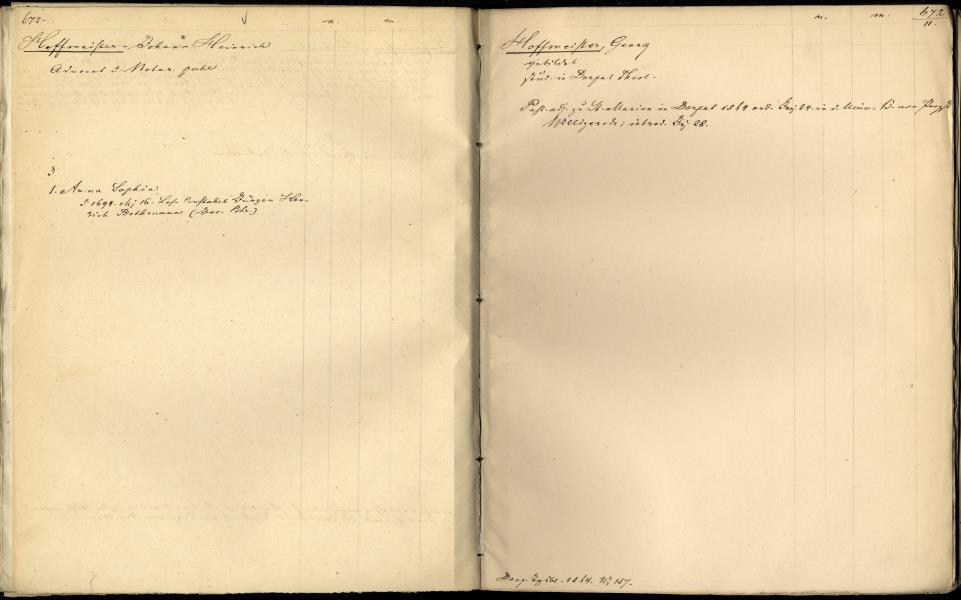 672.
n. m.
Hoffmeister - Johann Heinrich
Advocat u. Notar. publ
§
1. Anna Sophia
1699. Mj 16. Constabel Jürgen Hen-
rich Bothmann (Doc. Btr.)
n. m. 672
II.
Hoffmeister, Georg
gebildet
stud. in Dorpat Theol.
Past. adj. zu St. Marien in Dorpat 1864 ord. 24. in d. Univ. K. von Propst
Willigerode; introd. 28.
Dorp. Ztgsbl. 1864. No 157.